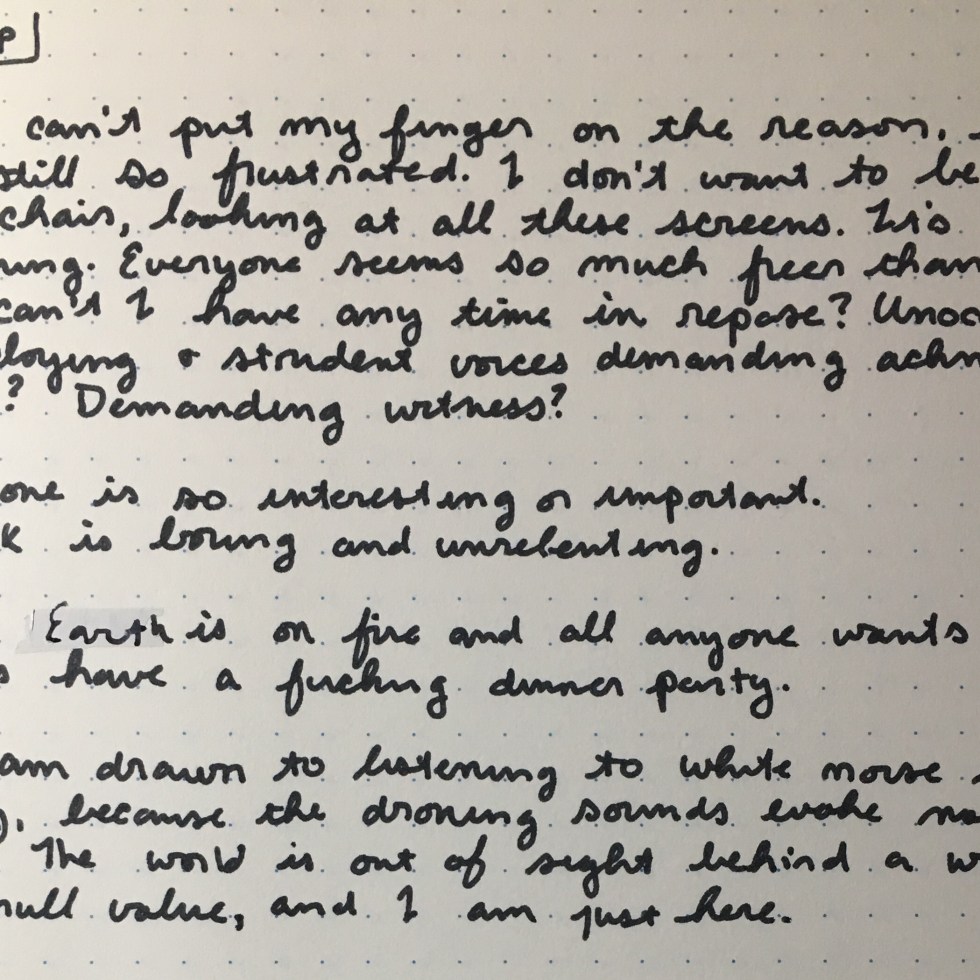 can't put my finger on the reason.
still so frustrated. I don't want to be
chair, looking at all these screens. It's
Everyone seems so much freer than
can't I have any time in repose? Unoc
loying & strident voices demanding
? Demanding witness?
one is so interesting or important.
is boring and unrelenting.
Earth is on fire and all anyone wants
have a fucking dinner party.
am drawn to listening to white noise
because the droning sounds evoke
The world is out of sight behind a
null value, and I am just here.